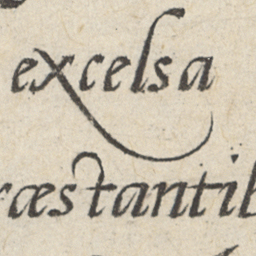 excelsa
ræstantib